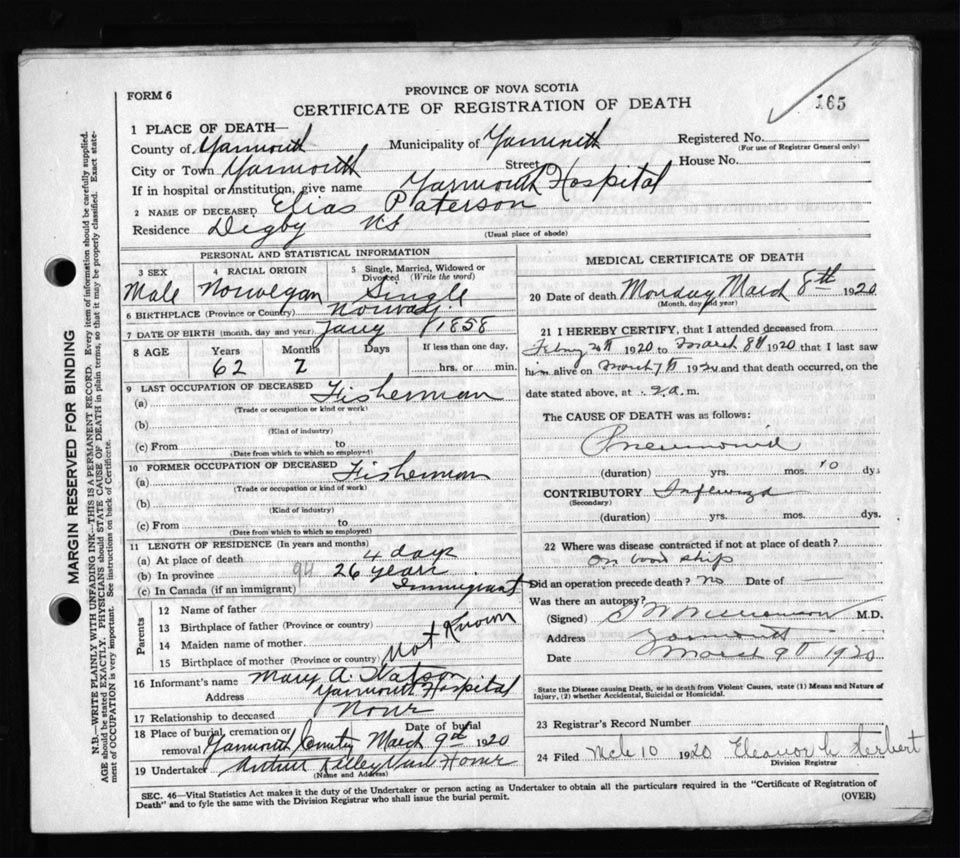 PROVINCE OF NOVA SCOTIA
FORM 6
CERTIFICATE OF REGISTRATION OF DEATH
165
1 PLACE OF DEATH—
County of Yarmouth Municipality of Yarmouth Registered No.
(For use of Registrar General only)
City or Town Yarmouth Street House No.
If in hospital or institution, give name Yarmouth Hospital
2 NAME OF DECEASED Elias Paterson
Residence Digby NS
(Usual place of abode)
PERSONAL AND STATISTICAL INFORMATION
3 SEX 4 RACIAL ORIGIN 5 Single, Married, Widowed or Divorced (Write the word)
Male Norwegan Single
6 BIRTHPLACE (Province or Country)
7 DATE OF BIRTH (month, day and year) Jany 1858
8 AGE Years Months Days If less than one day,
62 2 hrs. or min.
9 LAST OCCUPATION OF DECEASED
(a) Fisherman
(Trade or occupation or kind or work)
(b)
(Kind of industry)
(c) From to
(Date from which to which so employed)
10 FORMER OCCUPATION OF DECEASED
(a) Fisherman
(Trade or occupation or kind of work)
(b)
(Kind of industry)
(c) From to
(Date from which to which so employed)
11 LENGTH OF RESIDENCE (In years and months)
(a) At place of death 4 days
(b) In province 26 years
(c) In Canada (if an immigrant) Immigrant
Parents
12 Name of father
13 Birthplace of father (Province or country)
14 Maiden name of mother
15 Birthplace of mother (Province or country)
Not Known
16 Informant's name Mary A. Watson
Address Yarmouth Hospital
17 Relationship to deceased None
18 Place of burial, cremation or removal Date of burial
Yarmouth March 9th 1920
19 Undertaker
(Name and Address)
MEDICAL CERTIFICATE OF DEATH
20 Date of death Monday March 8th 1920
(Month, day and year)
21 I HEREBY CERTIFY, that I attended deceased from
1920 to March 8th 1920 that I last saw
him alive on March 7th 1920 and that death occurred, on the
date stated above, at 2 a. m.
The CAUSE OF DEATH was as follows:
Pneumonia
(duration) yrs. mos. 10 dys
CONTRIBUTORY Influenza
(Secondary)
(duration) yrs. mos. dys.
22 Where was disease contracted if not at place of death?
On board ship
Did an operation precede death? No Date of
Was there an autopsy?
(Signed) M.D.
Address Yarmouth
Date March 9th 1920
State the Disease causing Death, or in death from Violent Causes, state (1) Means and Nature of
Injury, (2) whether Accidental, Suicidal or Homicidal.
23 Registrar's Record Number
24 Filed Mch 10 1920 Eleanor
Division Registrar
SEC. 46—Vital Statistics Act makes it the duty of the Undertaker or person acting as Undertaker to obtain all the particulars required in the "Certificate of Registration of
Death" and to fyle the same with the Division Registrar who shall issue the burial permit.
(OVER)
MARGIN RESERVED FOR BINDING
N.B.—WRITE PLAINLY WITH UNFADING INK—THIS IS A PERMANENT RECORD. Every item of information should be carefully supplied.
AGE should be stated EXACTLY. PHYSICIANS should STATE CAUSE OF DEATH in plain terms, so that it may be properly classified. Exact state-
ment of OCCUPATION is very important. See instructions on back of Certificate.